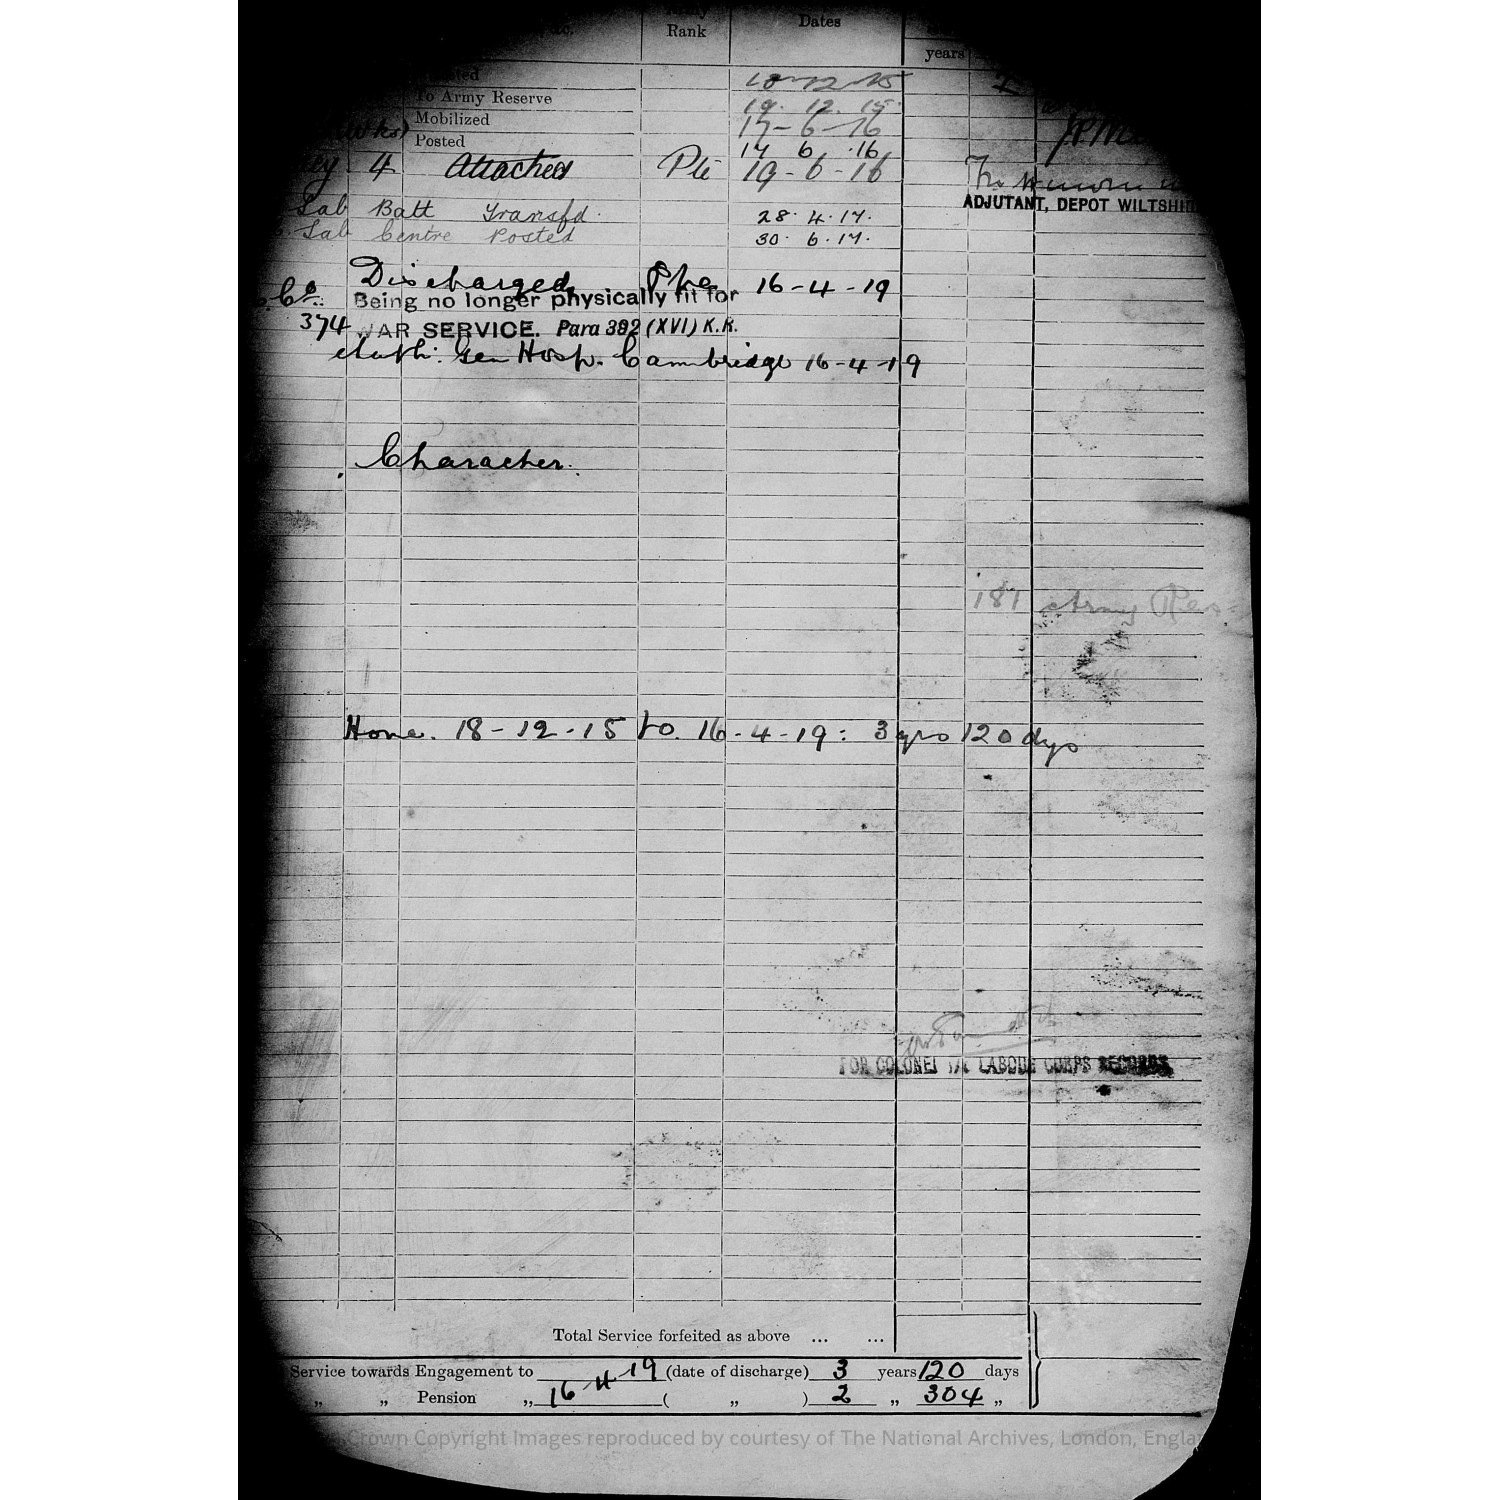 Rank Dates
years
18-12-15
To Army Reserve 19. 12. 15.
Mobilized 17-6-16
Posted 17 6 .16
4 Attached Pte 19-6-16
ADJUTANT, DEPOT WILTSHI
Lab Batt Transfd. 28. 4. 17.
Lab Centre Posted 30. 6. 17.
Discharged Pte 16-4-19
Co. Being no longer physically fit for
374 WAR SERVICE. Para 392 (XVI) K.R.
Auth: Gen Hosp. Cambridge 16-4-19
Character.
181 Army Res
Home. 18-12-15 to 16-4-19: 3 yrs 120 dys
FOR COLONEL I/C LABOUR CORPS RECORDS
Total Service forfeited as above ... ...
Service towards Engagement to 16-4-19 (date of discharge) 3 years 120 days
„ „ Pension „ ( „ ) 2 „ 304 „
Crown Copyright Images reproduced by courtesy of The National Archives, London, Engla